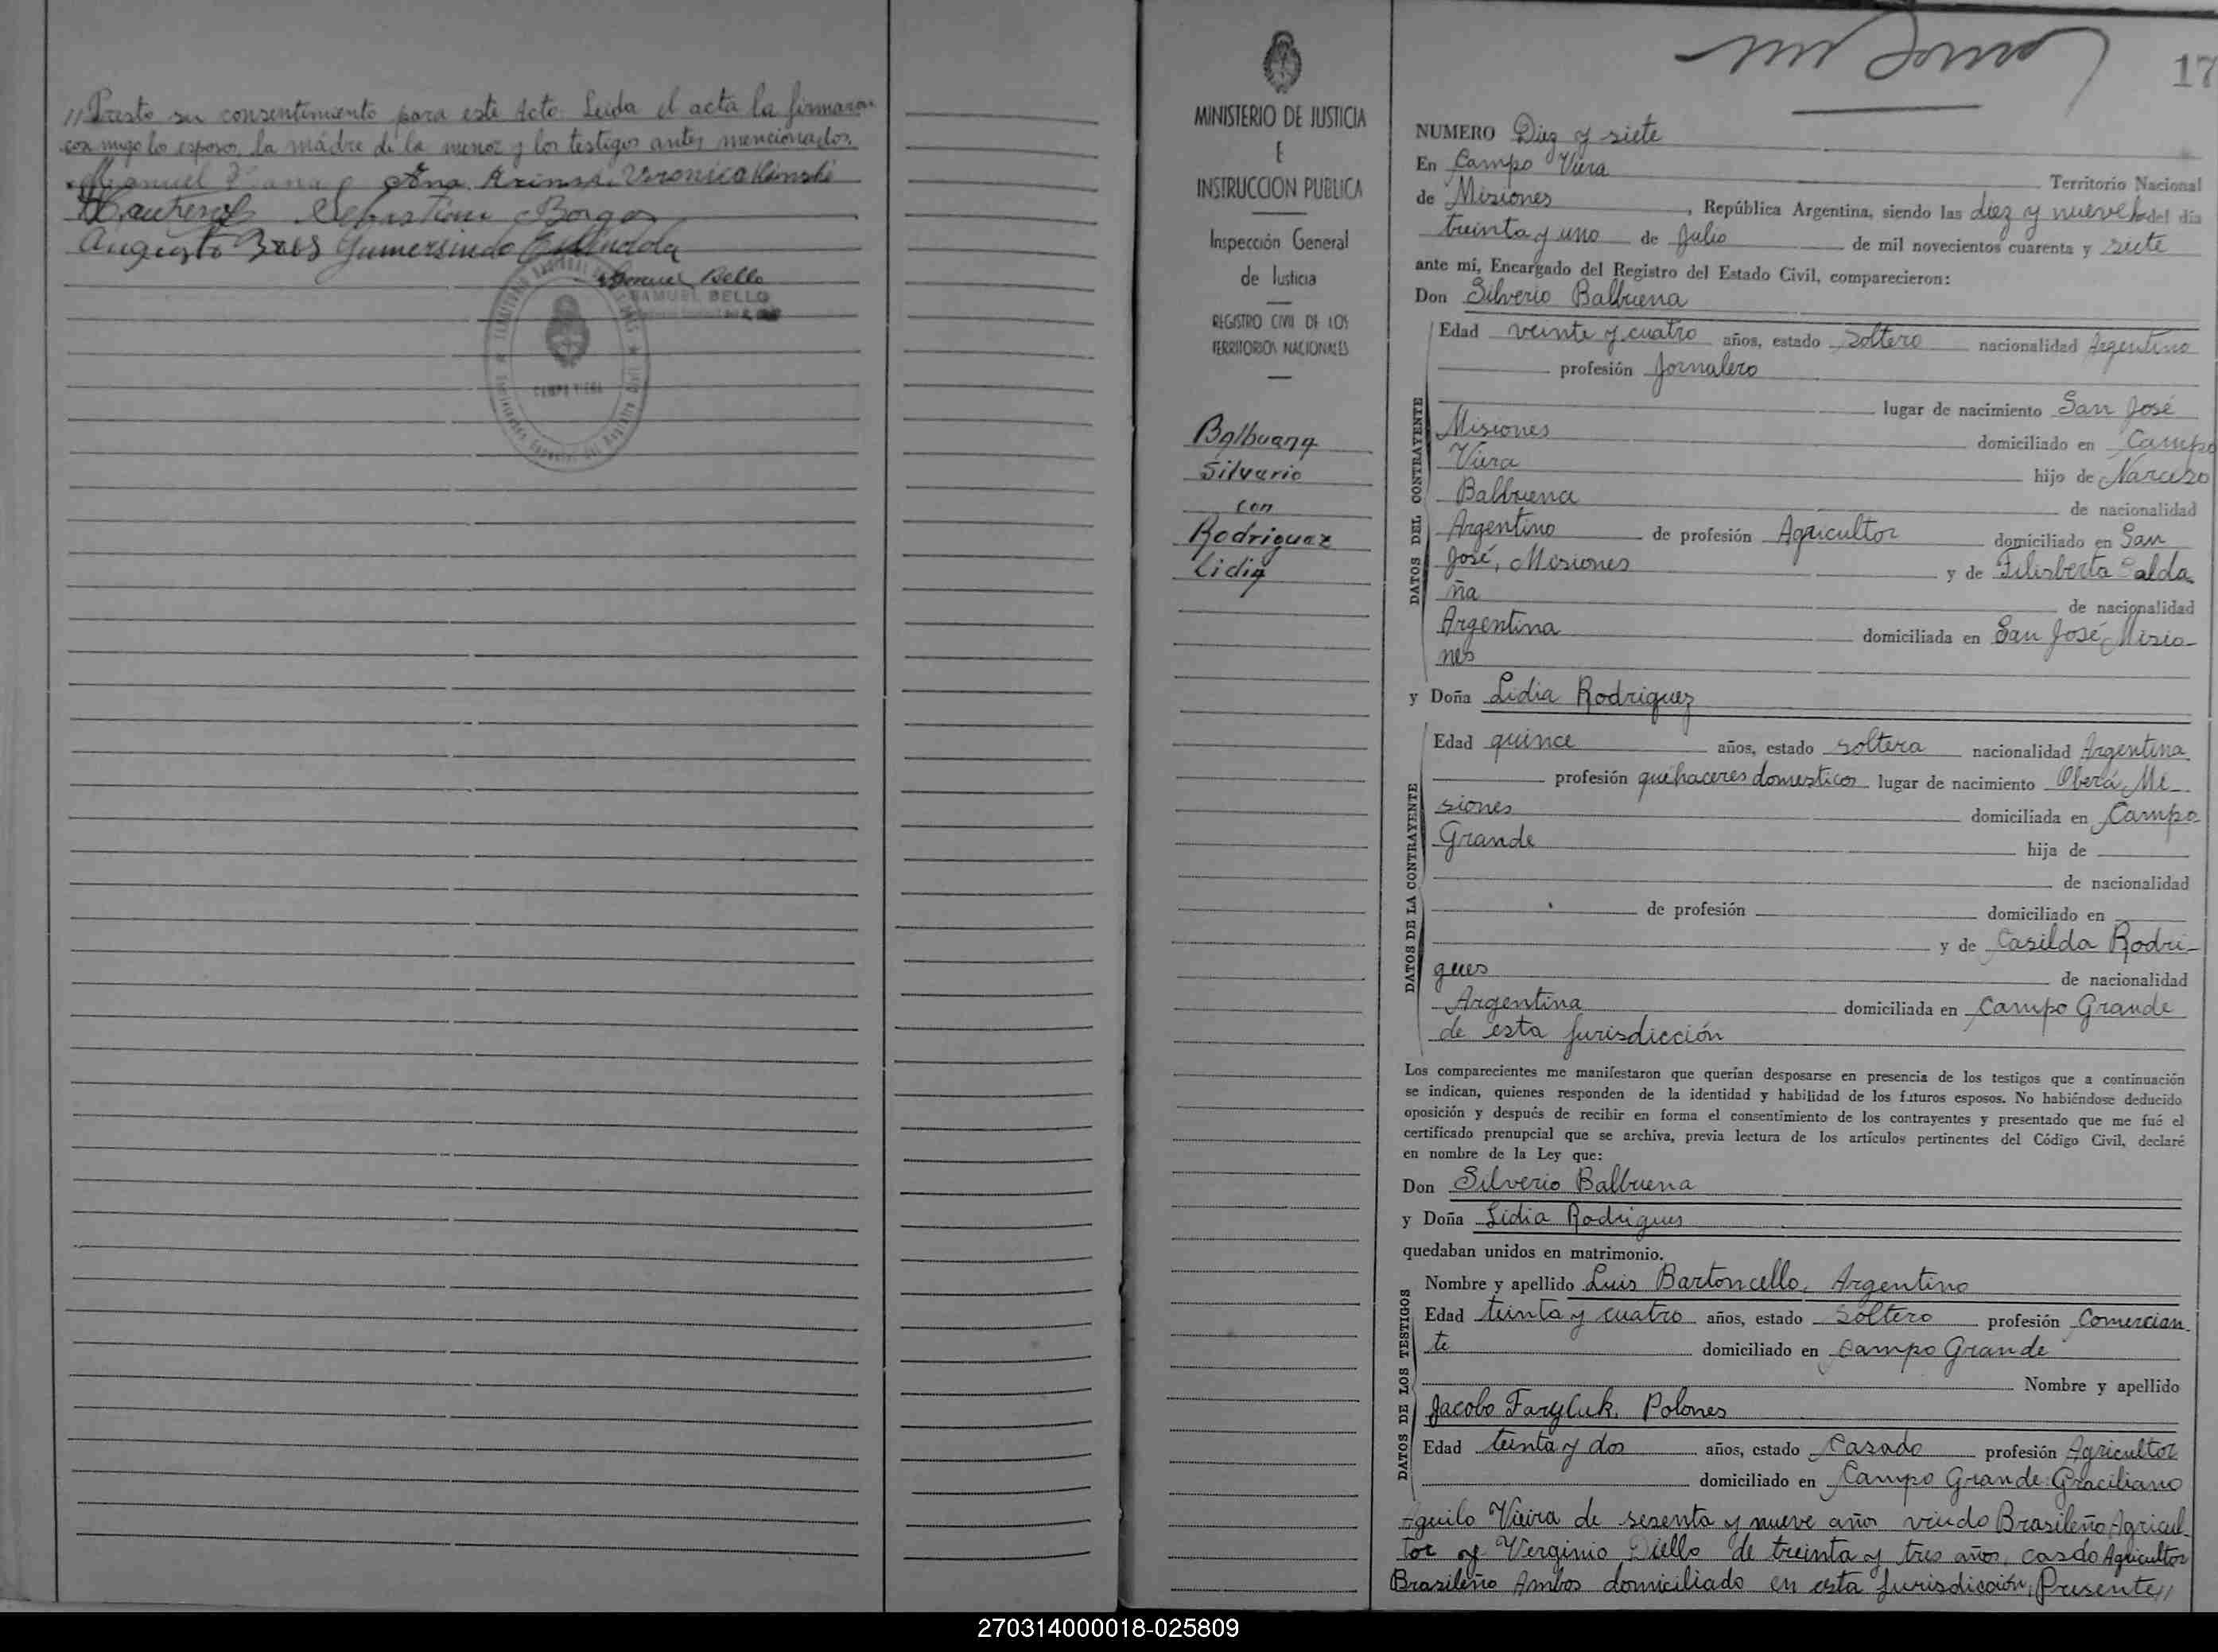 //Presto su consentimiento para este Acto. Leida el acta la firmaron
con migo los esposos, la madre de la menor y los testigos antes mencionados.
Manuel Ana Krinski Veronica Kinski
Sebastian Borges
Augusto Gumersindo
Samuel Bello
SAMUEL BELLO
CAMPO VIERA
MINISTERIO DE JUSTICIA
E
INSTRUCCION PUBLICA
Inspección General
de Justicia
REGISTRO CIVIL DE LOS
TERRITORIOS NACIONALES
Balbuena
Silverio
con
Rodriguez
Lidia
17
NUMERO Diez y siete
En Campo Viera Territorio Nacional
de Misiones, República Argentina, siendo las diez y nueve h. del día
treinta y uno de Julio de mil novecientos cuarenta y siete
ante mí, Encargado del Registro del Estado Civil, comparecieron:
Don Silverio Balbuena
DATOS DEL CONTRAYENTE
Edad veinte y cuatro años, estado Soltero nacionalidad Argentino
profesión Jornalero
lugar de nacimiento San José
Misiones domiciliado en Campo
Viera hijo de Narciso
Balbuena de nacionalidad
Argentino de profesión Agricultor domiciliado en San
José, Misiones y de Filisberta Salda
ña de nacionalidad
Argentina domiciliada en San José Misio-
nes
y Doña Lidia Rodriguez
DATOS DE LA CONTRAYENTE
Edad quince años, estado soltera nacionalidad Argentina
profesión quehaceres domesticos lugar de nacimiento Oberá, Mi-
siones domiciliada en Campo
Grande hija de
de nacionalidad
de profesión domiciliado en
y de Casilda Rodri-
gues de nacionalidad
Argentina domiciliada en Campo Grande
de esta jurisdicción
Los comparecientes me manifestaron que querían desposarse en presencia de los testigos que a continuación
se indican, quienes responden de la identidad y habilidad de los futuros esposos. No habiéndose deducido
oposición y después de recibir en forma el consentimiento de los contrayentes y presentado que me fué el
certificado prenupcial que se archiva, previa lectura de los artículos pertinentes del Código Civil, declaré
en nombre de la Ley que:
Don Silverio Balbuena
y Doña Lidia Rodrigues
quedaban unidos en matrimonio.
DATOS DE LOS TESTIGOS
Nombre y apellido Luis Bartoncello, Argentino
Edad treinta y cuatro años, estado Soltero profesión Comercian
te domiciliado en Campo Grande
Nombre y apellido
Jacobo Faryluk, Polones
Edad treinta y dos años, estado Casado profesión Agricultor
domiciliado en Campo Grande: Graciliano
Aguilo Vieira de sesenta y nueve años viudo Brasileño Agricul-
tor y Verginio Diello de treinta y tres años, casdo Agricultor
Brasileño Ambos domiciliado en esta jurisdicción, Presente//
270314000018-025809